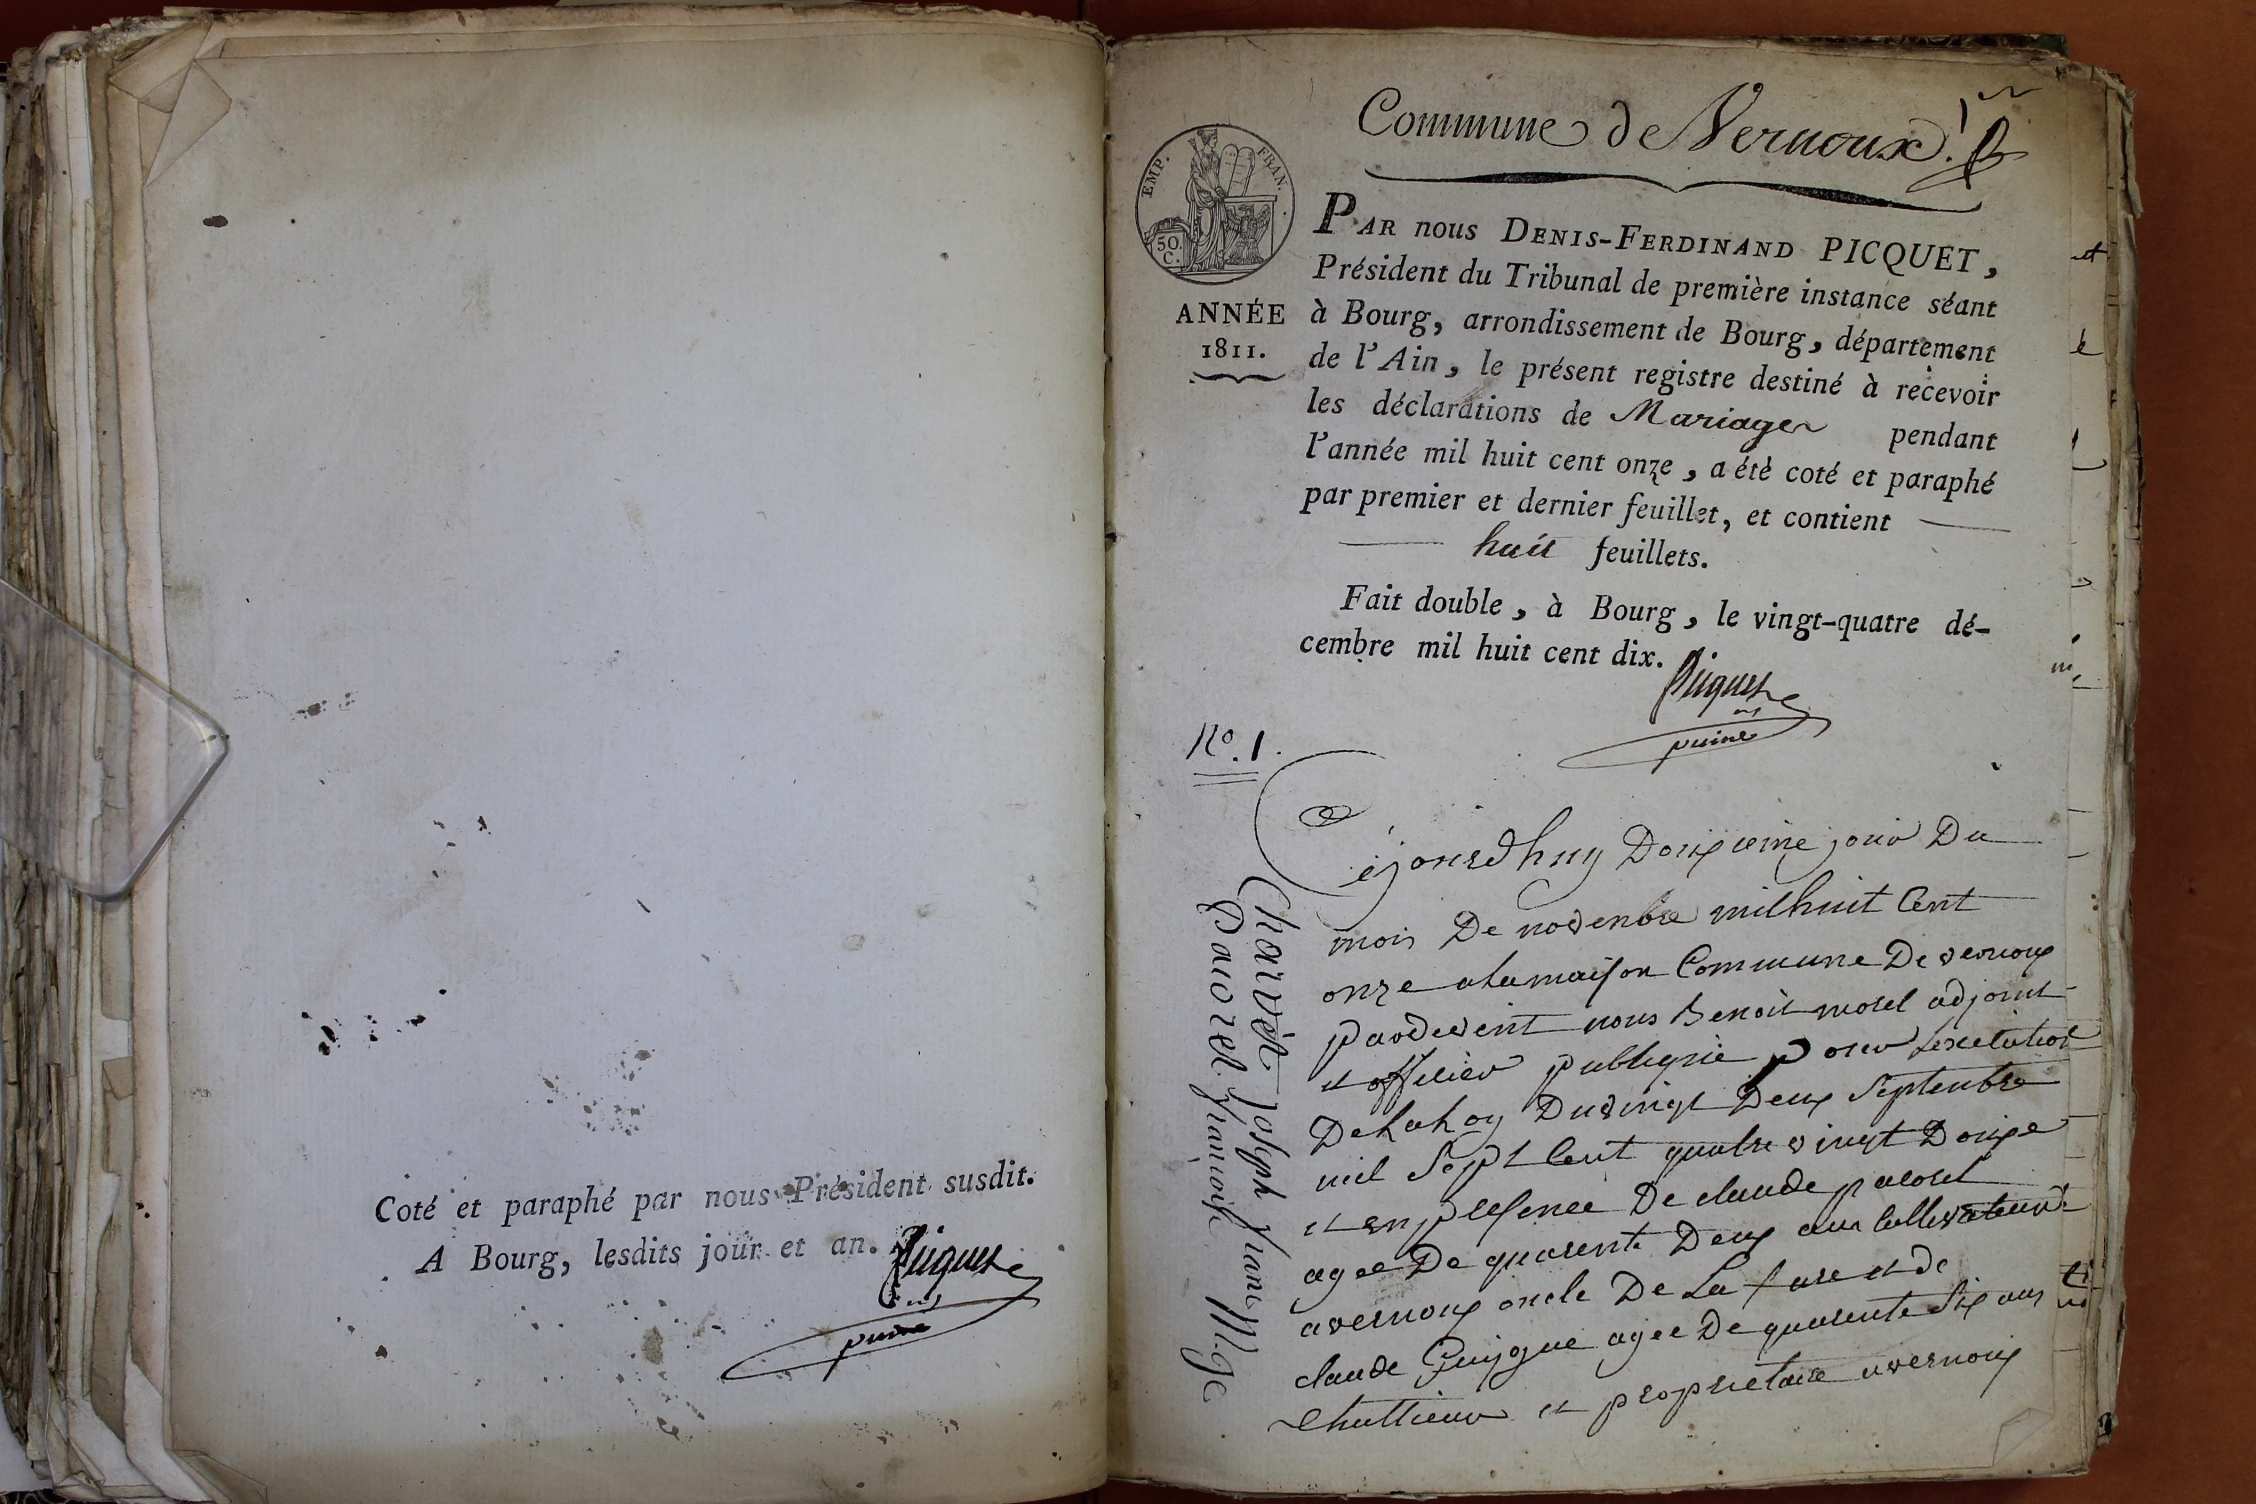 Coté et paraphé par nous Président susdit.
A Bourg, lesdits jour et an.
Picquet
puiné
Commune de Vernoux.
1er
EMP. FRAN.
50.
C.
ANNÉE
1811.
PAR nous DENIS-FERDINAND PICQUET,
Président du Tribunal de première instance séant
à Bourg, arrondissement de Bourg, département
de l'Ain, le présent registre destiné à recevoir
les déclarations de Mariages pendant
l'année mil huit cent onze, a été coté et paraphé
par premier et dernier feuillet, et contient
huit feuillets.
Fait double, à Bourg, le vingt-quatre dé-
cembre mil huit cent dix.
Picquet
puiné
No. 1.
Charvet Joseph franc
Pauorel françoise
M.ge
Cejourdhuy Douxieme jour Du
mois De novenbre milhuit Cent
onze alamaison Commune De vernoux
pardevent nous Benoit morel adjoint
et officier publique pour Lexecution
De la loy Du vingt Deux Septenbre
mil Sept Cent quatre vingt Douze
et en presence De claude pauorel
agee De quarente Deux ans Cultivateur
avernoux oncle De La future et de
claude Guyogue agee De quarente Six ans
et proprietaire avernoux